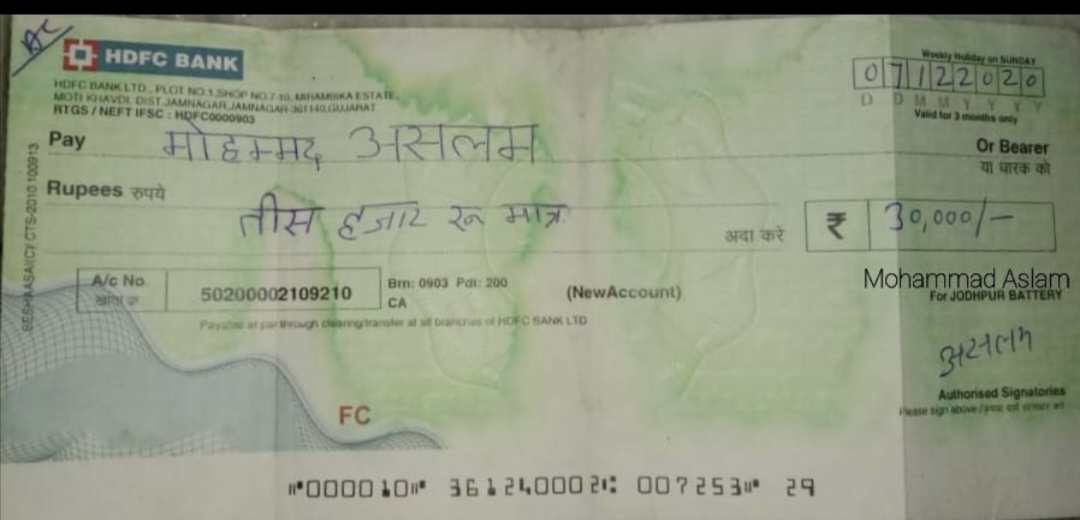 Ac
HDFC BANK
HDFC BANK LTD., PLOT NO.1, SHOP NO.7-10, MIRAMBIKA ESTATE,
MOTI KHAVDI, DIST. JAMNAGAR, JAMNAGAR 361140, GUJARAT
RTGS / NEFT IFSC : HDFC0000903
Weekly Holiday on SUNDAY
07122020
D D M M Y Y Y Y
Valid for 3 months only
Pay मोहम्मद असलम
Or Bearer
या धारक को
Rupees रुपये तीस हजार रू मात्र
अदा करे ₹ 30,000/-
A/c No.
खाता क्र.
50200002109210
Brn: 0903 Pdt: 200
CA
(NewAccount)
Mohammad Aslam
For JODHPUR BATTERY
Payable at par through clearing/transfer at all branches of HDFC BANK LTD
असलम
Authorised Signatories
Please sign above /
FC
CTS-2010 100913
⑈000010⑈ 361240002⑆ 007253⑈ 29